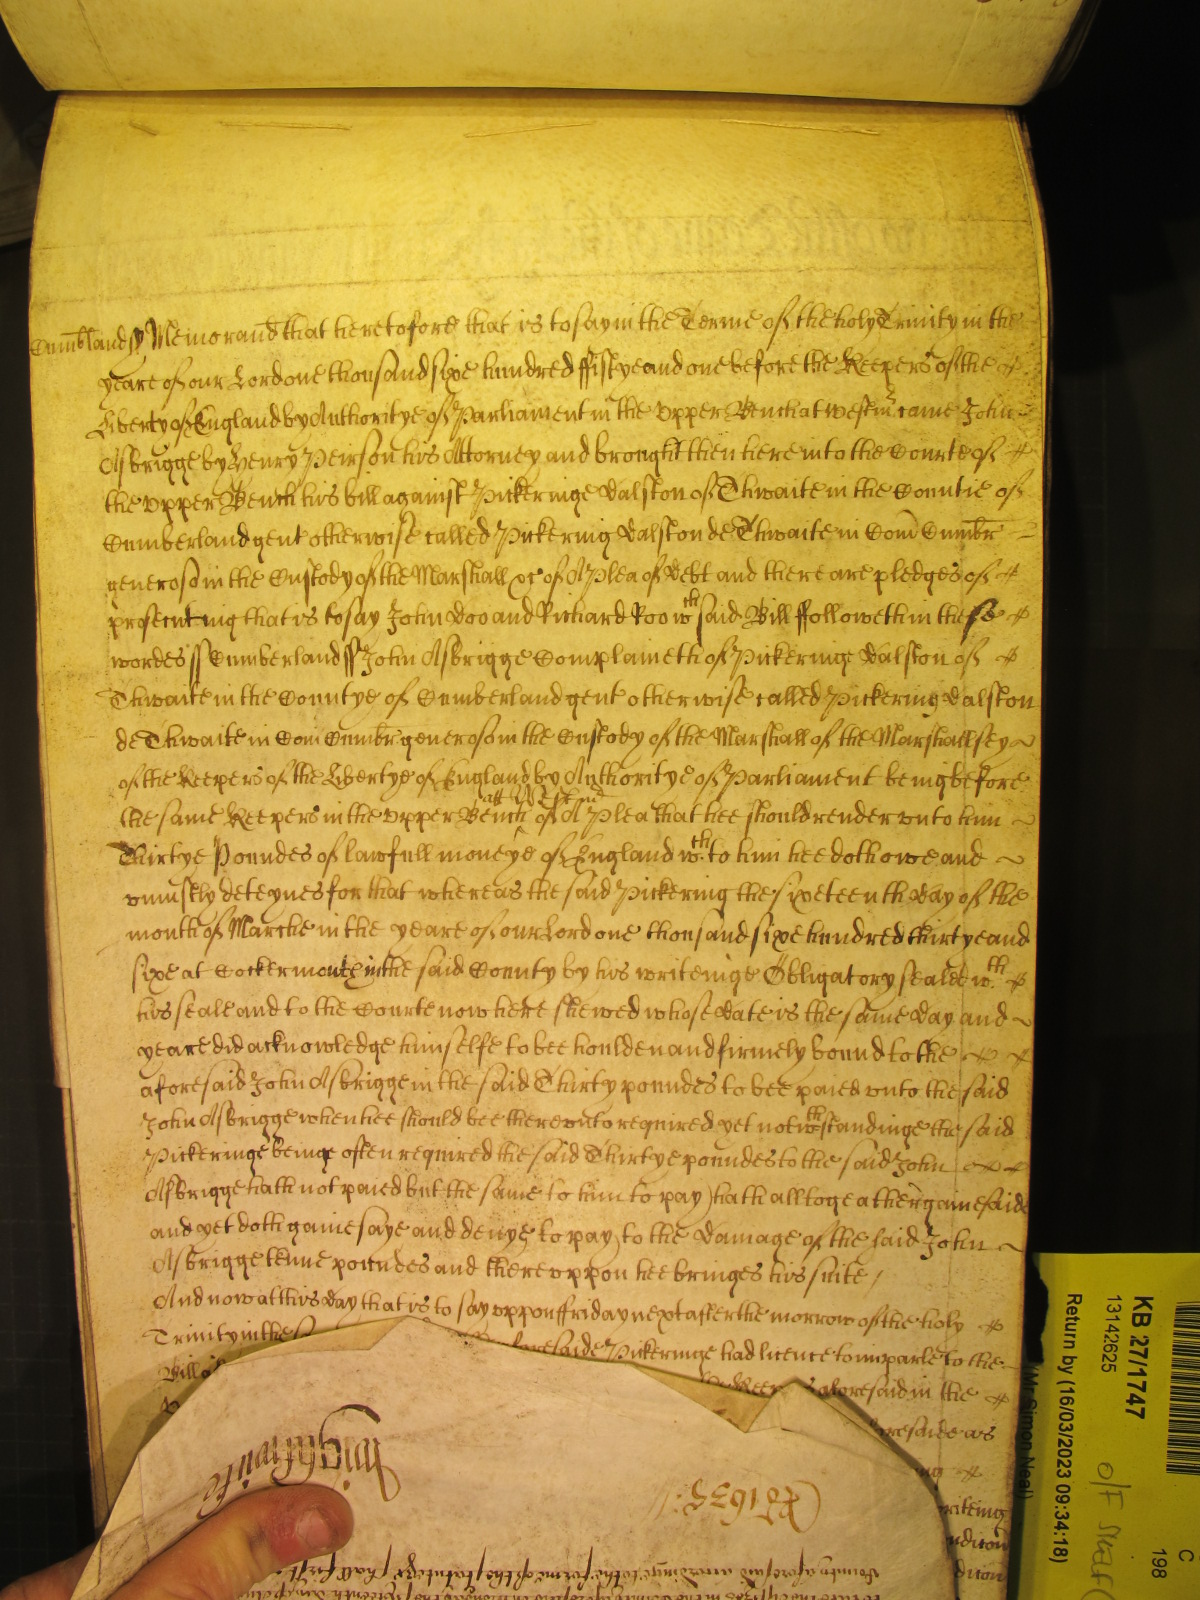 Cumbland ss Memorand that heretofore that is to say in the Terme of the holy Trinity in the
yeare of our Lord one thousand sixe hundred ffiftye and one before the Keepers of the
Liberty of England by Authoritye of Parliament in the vpper Bench at Westm͠ came John
Asbrigge by Henry Peirson his Attorney and brought then here into the Courte of
the vpper Bench his bill against Pickeringe Dalston of Thwaite in the Countie of
Cumberland gent otherwise called Pickering Dalston de Thwaite in Com̄ Cumbr̄
generoso in the Custody of the Marshall xc of A Plea of Debt and there are pledges of
prosecuting that is to say John Doo and Richard Roo wth said Bill ffolloweth in these
wordes ss Cumberland ss John Asbrigge Complaineth of Pickeringe Dalston of
Thwaite in the Countye of Cumberland gent otherwise called Pickering Dalston
de Thwaite in Com̄ Cumbr̄ generoso in the Custody of the Marshall of the Marshallsey
of the Keepers of the Libertye of England by Authoritye of Parliament being before
the same Keepers in the vpper Bench att Westm̄ of A Plea that hee should render vnto him
Thirtye Poundes of lawfull moneye of England wth to him hee doth owe and
vniustly deteynes for that whereas the said Pickering the sixeteenth day of the
month of Marche in the yeare of our Lord one thousand sixe hundred thirtye and
sixe at Cockermouth in the said County by his writeinge Obligatory sealed wth
his seale and to the Courte now here shewed whose date is the same day and
yeare did acknowledge himselfe to bee houlden and firmely bound to the
aforesaid John Asbrigge in the said Thirty poundes to bee paied vnto the said
John Asbrigge when hee should bee therevnto required yet notwthstandinge the said
Pickeringe beinge often required the said Thirtye poundes to the said John
Asbrigge hath not paied but the same to him to pay) hath alltogeather gainesaide
and yet doth gainesaye and denye to pay) to the Damage of the said John
Asbrigge tenne poundes and therevppon hee bringes his suite /
And now at this day that is to say vppon ffriday next after the morrow of the holy
Trinity in the aforesaide Pickeringe had licence to imparle to the
Bill aforesaid in the
aforesaide as
writeing
KB 27/1747
13142625
Return by (16/03/2023 09:34:18)
(Mr Simon Neal)
C
198
O/F